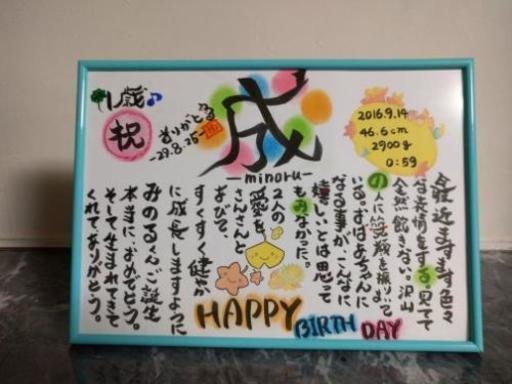 1歳
祝
-29.8.25-
成
-minoru-
2016.9.14
46.6cm
2900g
0:59
最近ますます色々
な表情をする。見てて
全然飽きない。沢山
の人に笑顔を振りまいて
いる。おばあちゃんに
なる事が、こんなに
嬉しいとは思って
もみなかった。
2人の
愛を
さんさんと
あびて、
すくすく健やか
に成長しますように
みのるくんご誕生
本当におめでとう。
そして生まれてきて
くれてありがとう。
HAPPY
BIRTH DAY